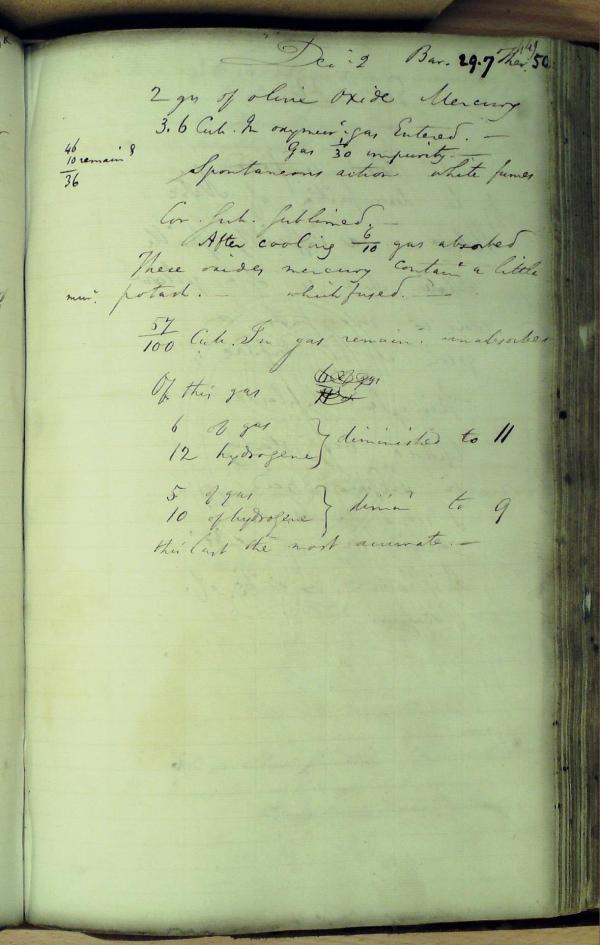 Dec: 2 Bar. 29.7 Ther. 50
2 grs of olive Oxide Mercury
3.6 Cub. In oxymurc. gas Entered. —
Gas 1/30 impurity. —
46
10 remaind
36
Spontaneous action white fumes
Cor. Sub. Sublimed. —
After cooling 6/10 gas absorbed
These oxides mercury contain a little
mur. potash. — which fused. —
57/100 Cub. In gas remain. unabsorbed
Of this gas
6 of gas
12 hydrogene } diminished to 11
5 of gas
10 of hydrogene } dimin to 9
this last the most accurate. —